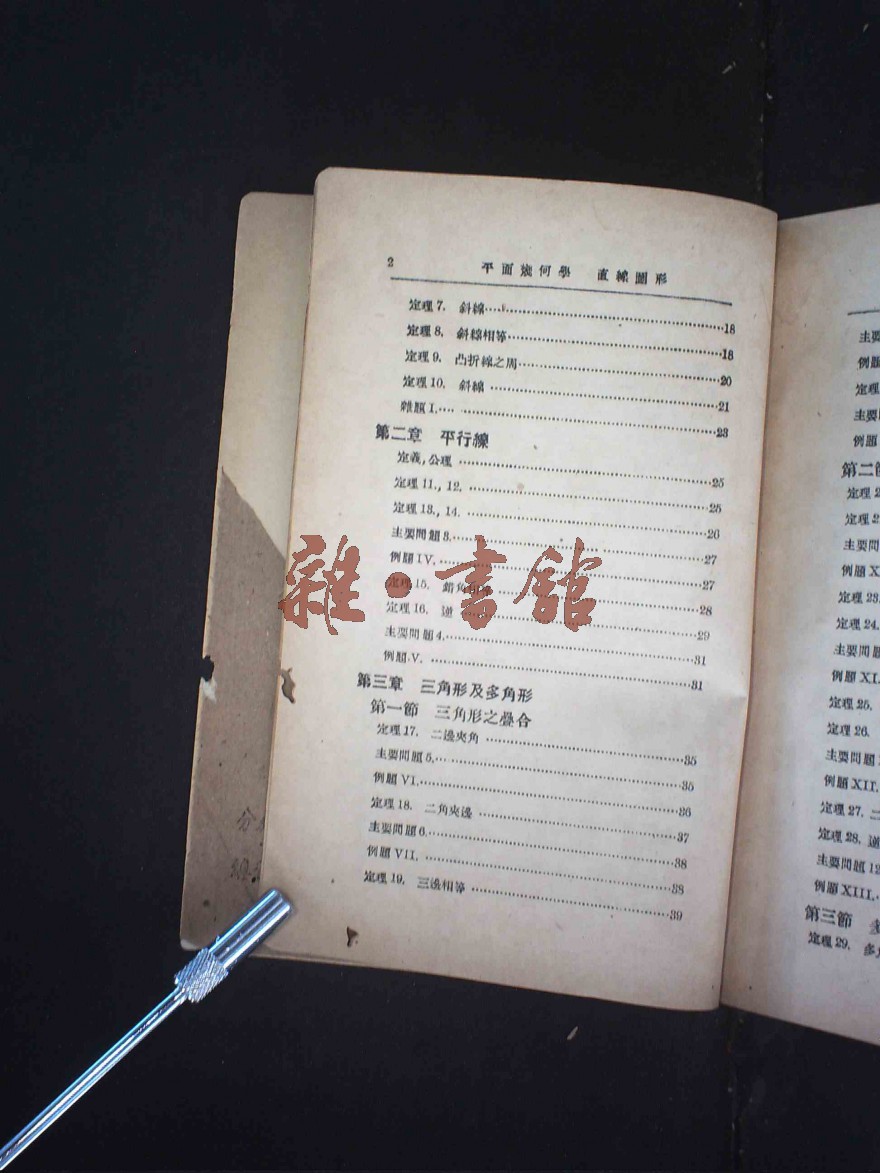 2 平面幾何學 直線圖形
定理7. 斜線……18
定理8. 斜線相等……18
定理9. 凸折線之周……20
定理10. 斜線……21
雜題I.……23
第二章 平行線
定義,公理……25
定理11., 12.……25
定理13., 14.……26
主要問題3.……27
例題IV.……27
定理15. 錯角……28
定理16. 逆……29
主要問題4.……31
例題V.……31
第三章 三角形及多角形
第一節 三角形之疊合
定理17. 二邊夾角……35
主要問題5.……35
例題VI.……36
定理18. 二角夾邊……37
主要問題6.……38
例題VII.……38
定理19. 三邊相等……39
雜·書館
主要
例題
定理
主要
例題
第二節
定理2
定理2
主要問
例題X
定理23.
定理24.
主要問題
例題XI.
定理25.
定理26.
主要問題
例題XII.
定理27. 二
定理28. 逆
主要問題12
例題XIII.
第三節 多
定理29. 多角